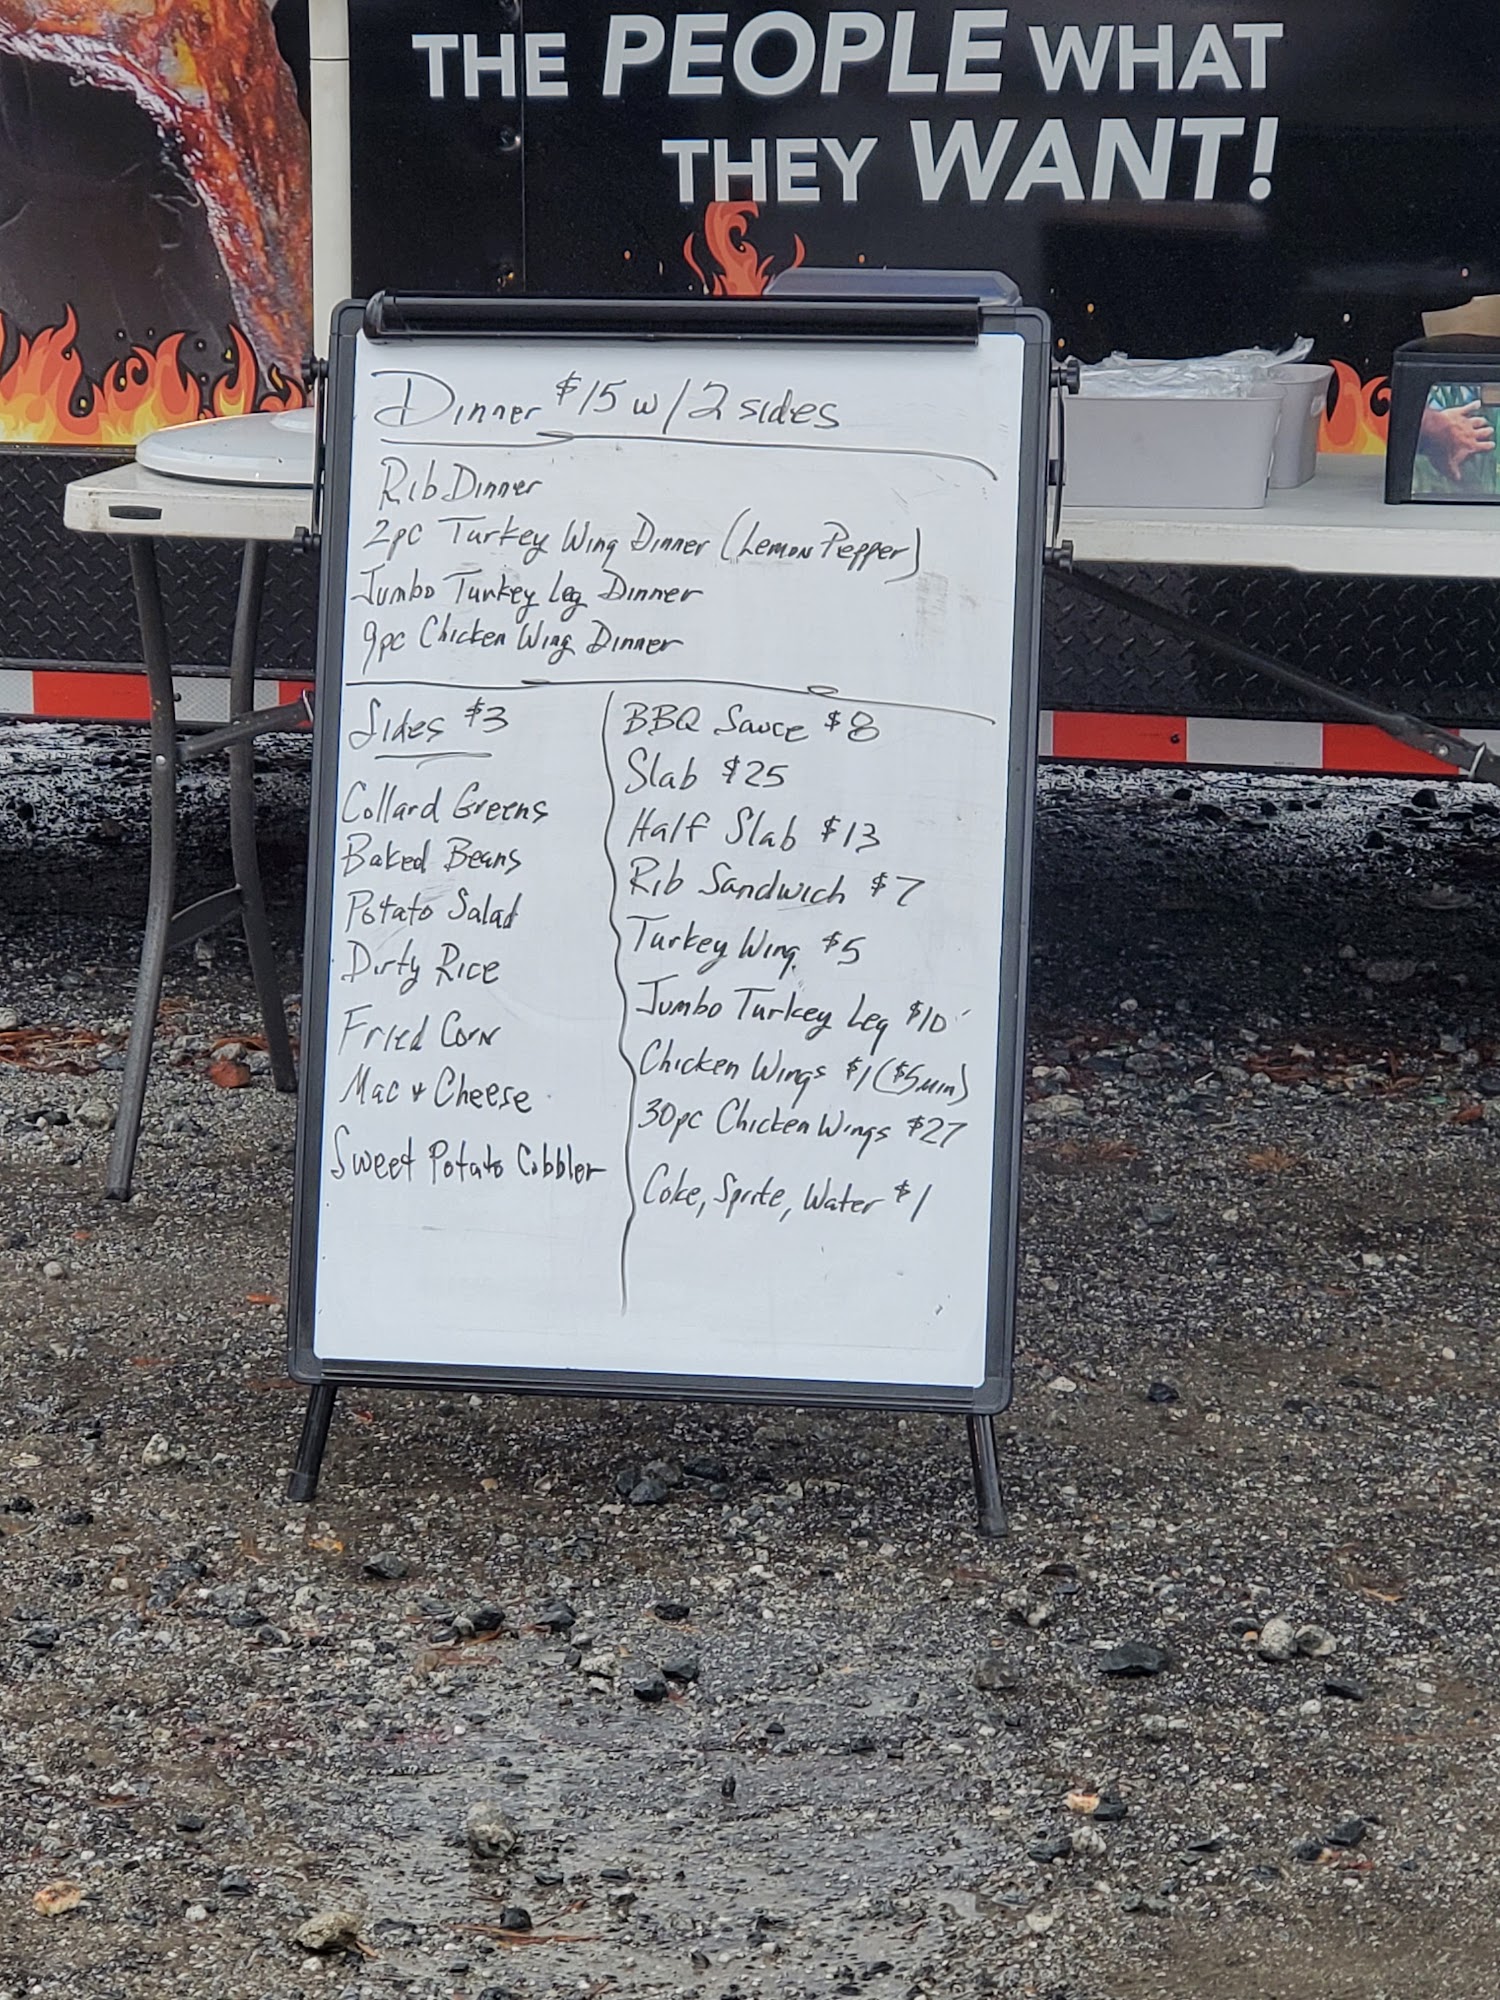 THE PEOPLE WHAT
THEY WANT!
Dinner $15 w/2 sides
Rib Dinner
2pc Turkey Wing Dinner (Lemon Pepper)
Jumbo Turkey Leg Dinner
9pc Chicken Wing Dinner
Sides $3
Collard Greens
Baked Beans
Potato Salad
Dirty Rice
Fried Corn
Mac & Cheese
Sweet Potato Cobbler
BBQ Sauce $8
Slab $25
Half Slab $13
Rib Sandwich $7
Turkey Wing $5
Jumbo Turkey Leg $10
Chicken Wings $1 ($5 min)
30pc Chicken Wings $27
Coke, Sprite, Water $1